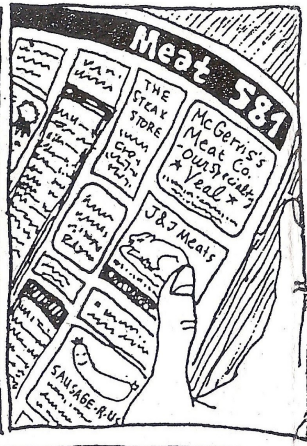 Meat 581
THE
STEAK
STORE
McGerris's
Meat Co.
our specialty
★ Veal ★
J&J Meats
SAUSAGE-R-US